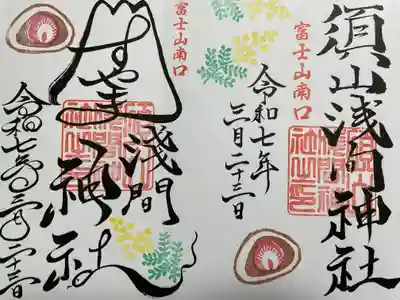 須山浅間神社
富士山南口
令和七年
三月二十三日
富士山南口
すやま
淺間
神社
令和七年三月二十三日